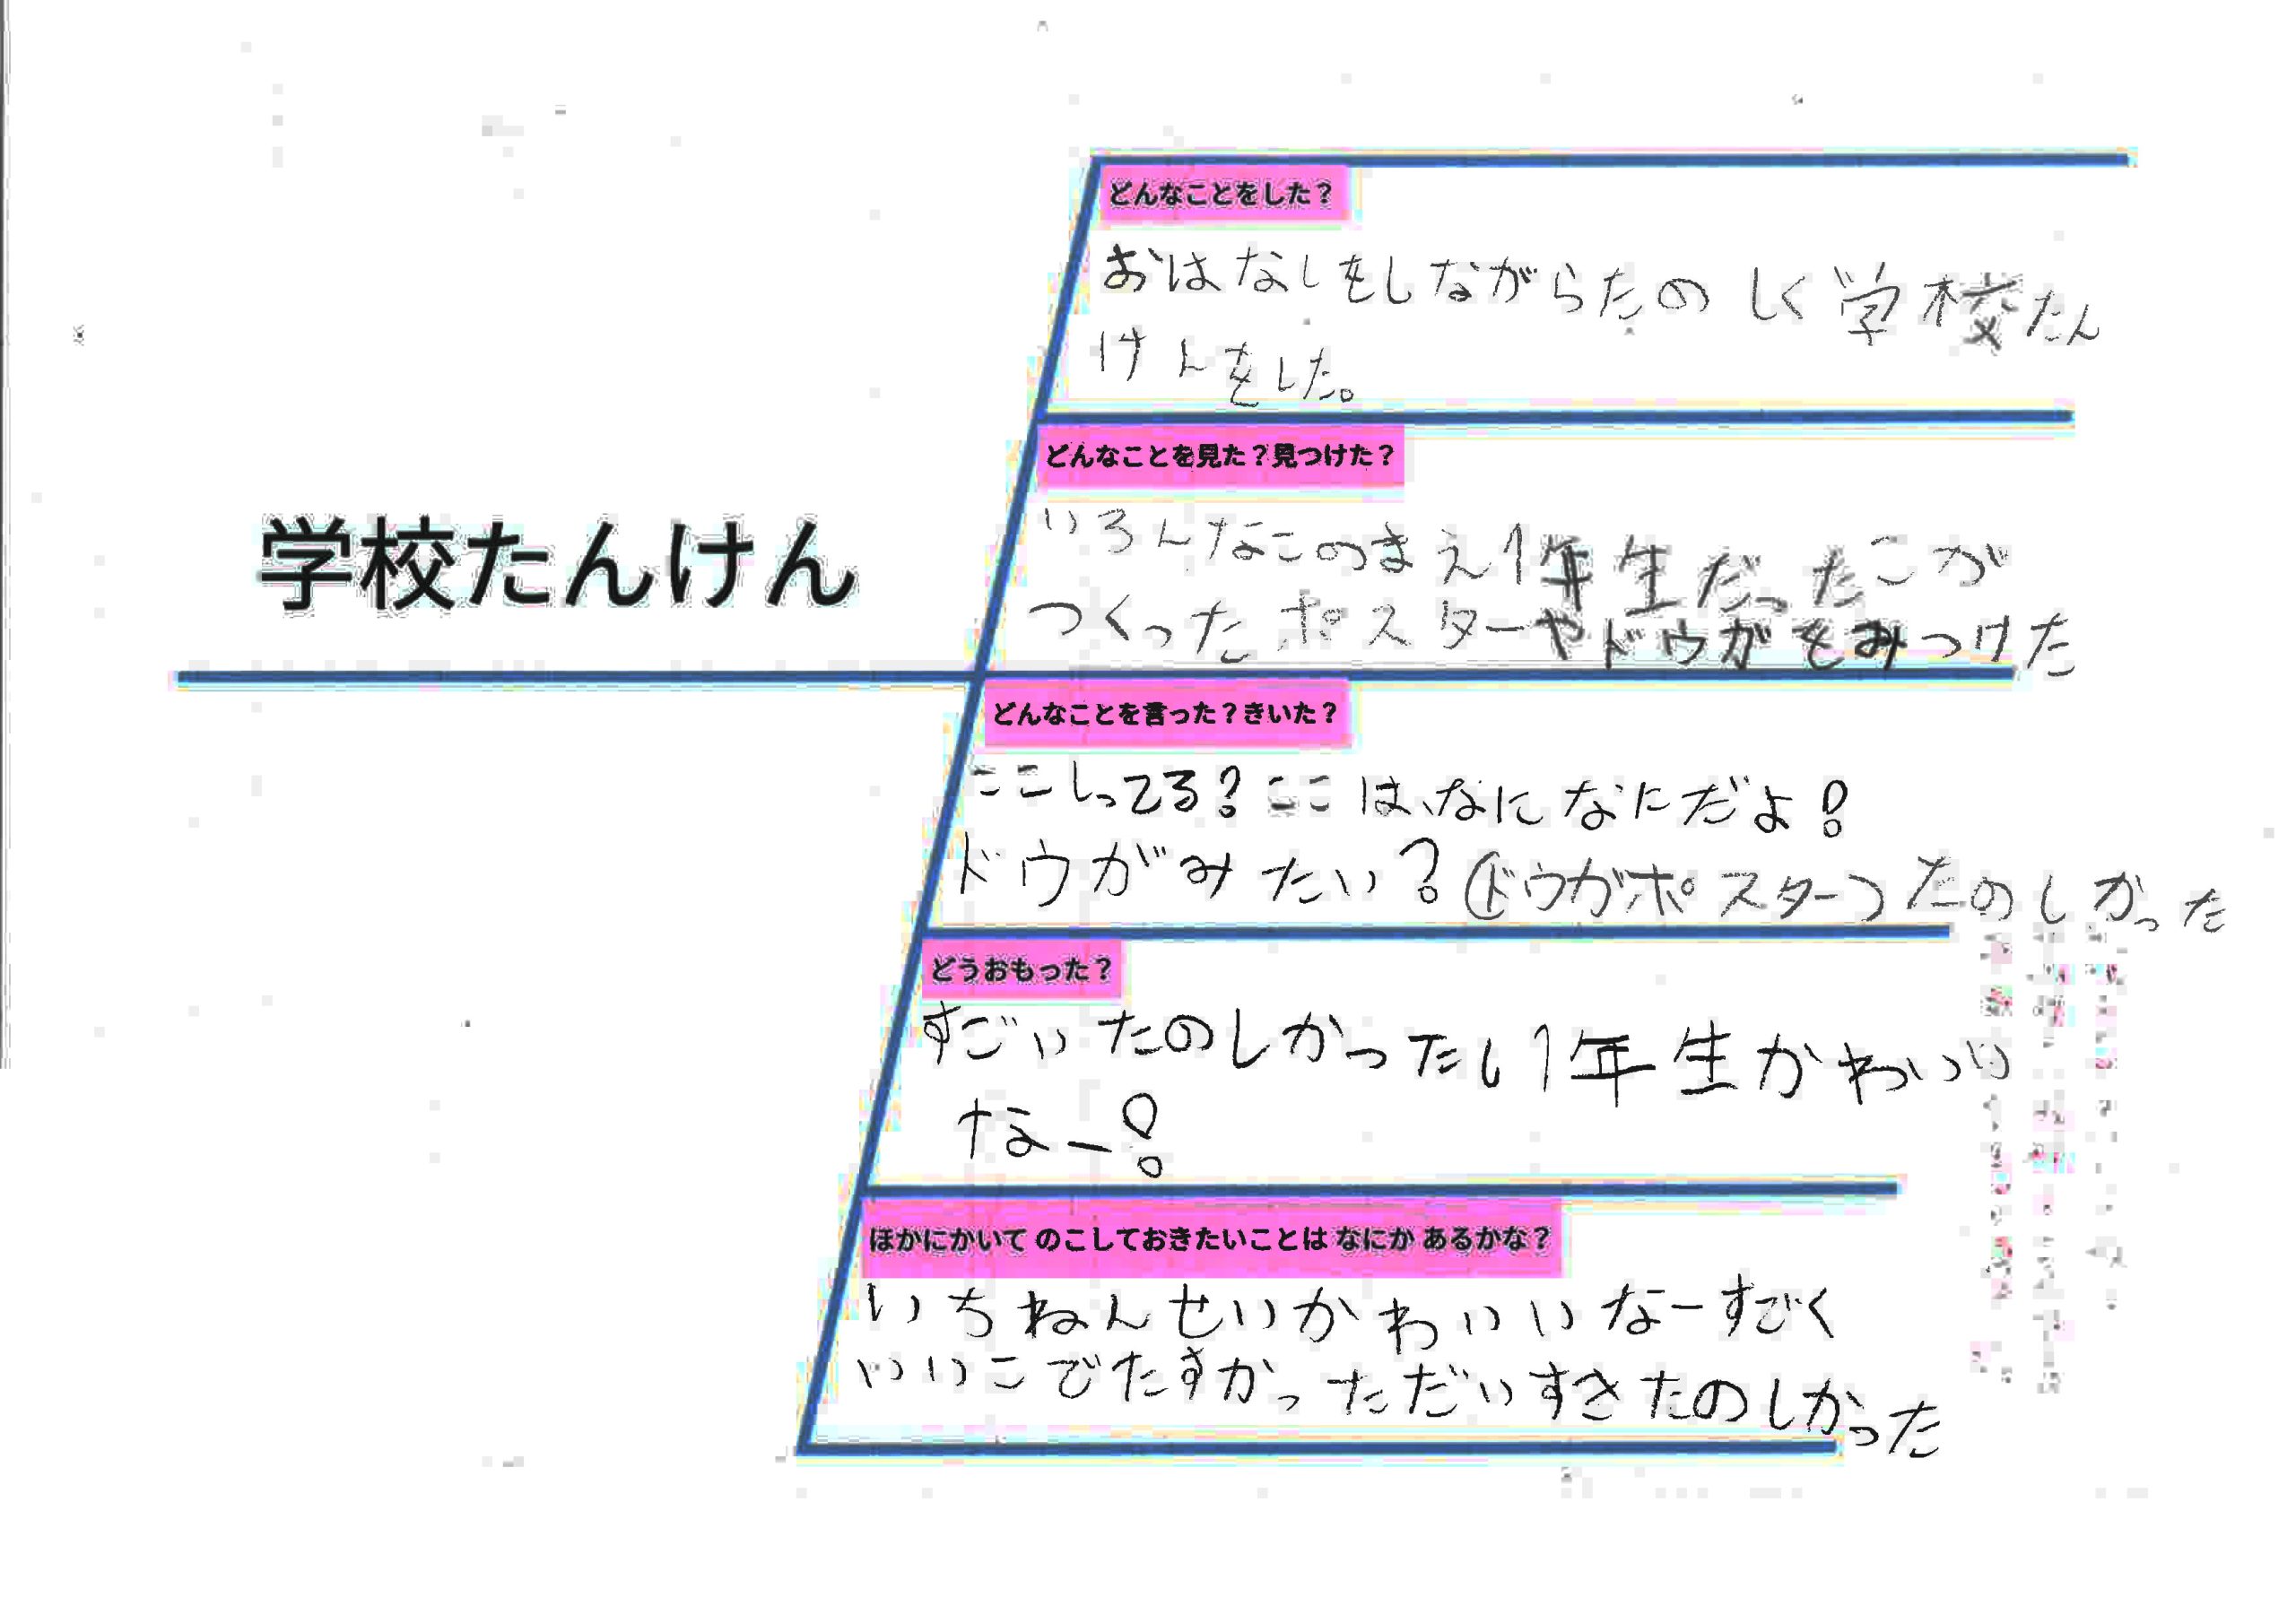 学校たんけん
どんなことをした？
おはなしをしながらたのしく学校たん
けんをした。
どんなことを見た？見つけた？
いろんなこのまえ1年生だったこが
つくったポスターやドウガをみつけた
どんなことを言った？きいた？
ここしってる？ここは、なになにだよ！
ドウがみたい？(ドウがポスター)たのしかった
どうおもった？
すごいたのしかったし1年生かわいい
なー！
ほかにかいて のこしておきたいことは なにか あるかな？
いちねんせいかわいいなーすごく
いいこでたすかっただいすきたのしかった